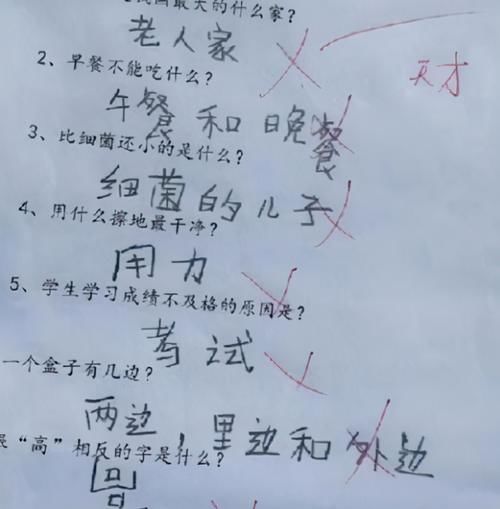 最大的什么家？
老人家
天才
2、早餐不能吃什么？
午餐和晚餐
3、比细菌还小的是什么？
细菌的儿子
4、用什么擦地最干净？
用力
5、学生学习成绩不及格的原因是？
考试
一个盒子有几边？
两边，里边和外边
“高”相反的字是什么？